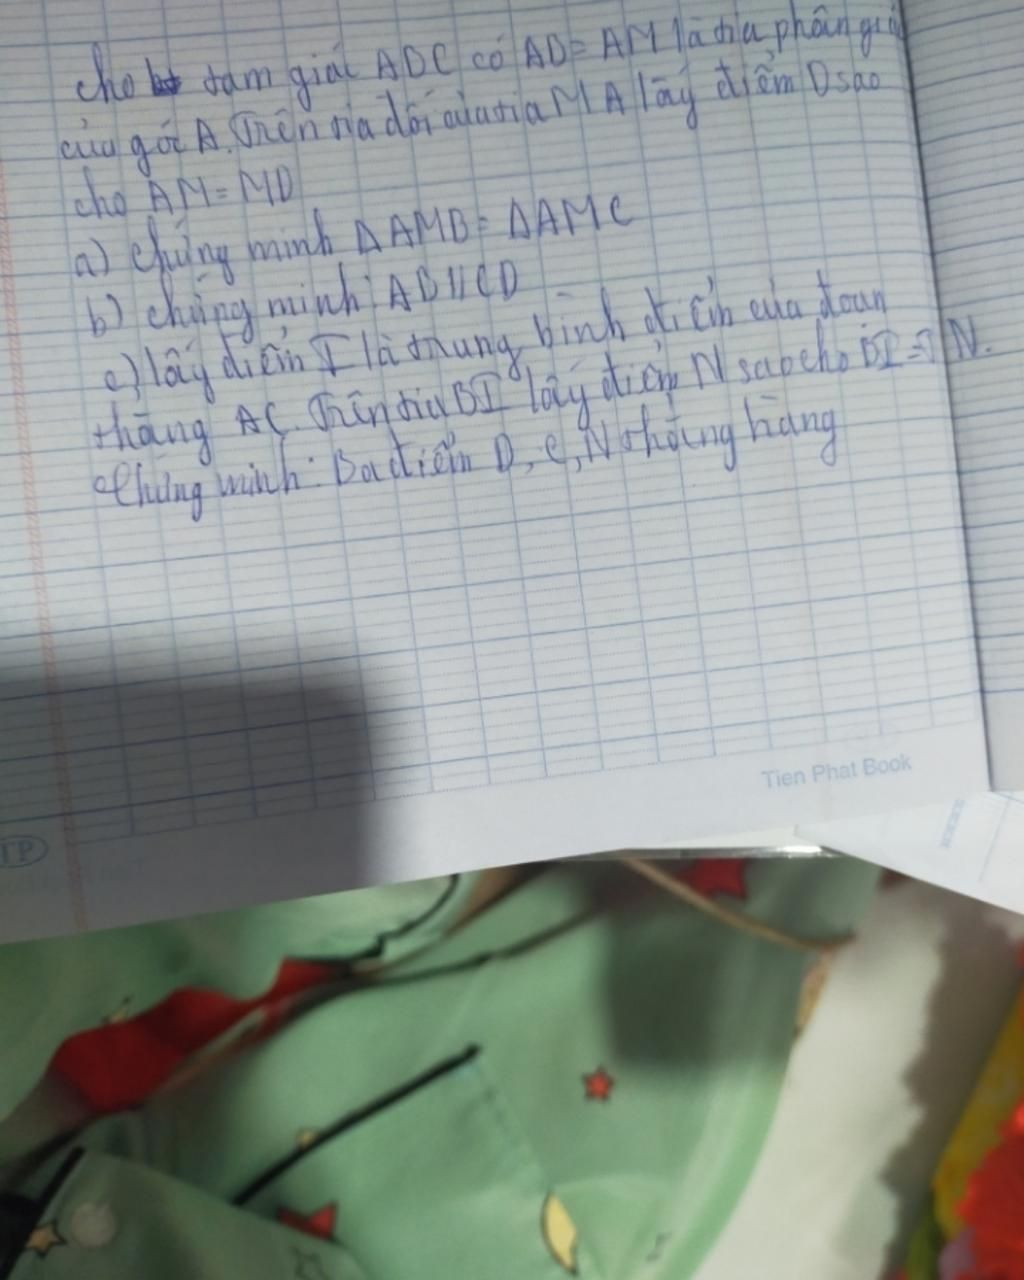 cho tam giác ABC có AB = AM là tia phân giác
của góc A. Trên tia đối của tia MA lấy điểm D sao
cho AM = MD
a) chứng minh ΔAMB = ΔAMC
b) chứng minh: AB // CD
c) lấy điểm I là trung bình điểm của đoan
thẳng AC. Trên tia BI lấy điểm N sao cho BI = IN.
Chứng minh: Ba điểm D, C, N thẳng hàng
Tien Phat Book
TP